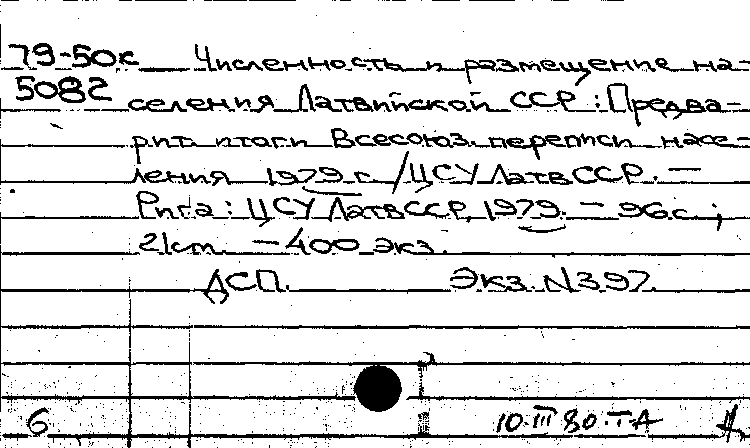 79-50к Численность и размещение на-
5082 селения Латвийской ССР : Предва-
рит. итоги Всесоюз. переписи насе-
ления 1979 г. / ЦСУ ЛатвССР. —
Рига : ЦСУ ЛатвССР, 1979. — 96с ;
21см. — 400 экз.
ДСП. Экз. N397.
6 10.III 80.ТА